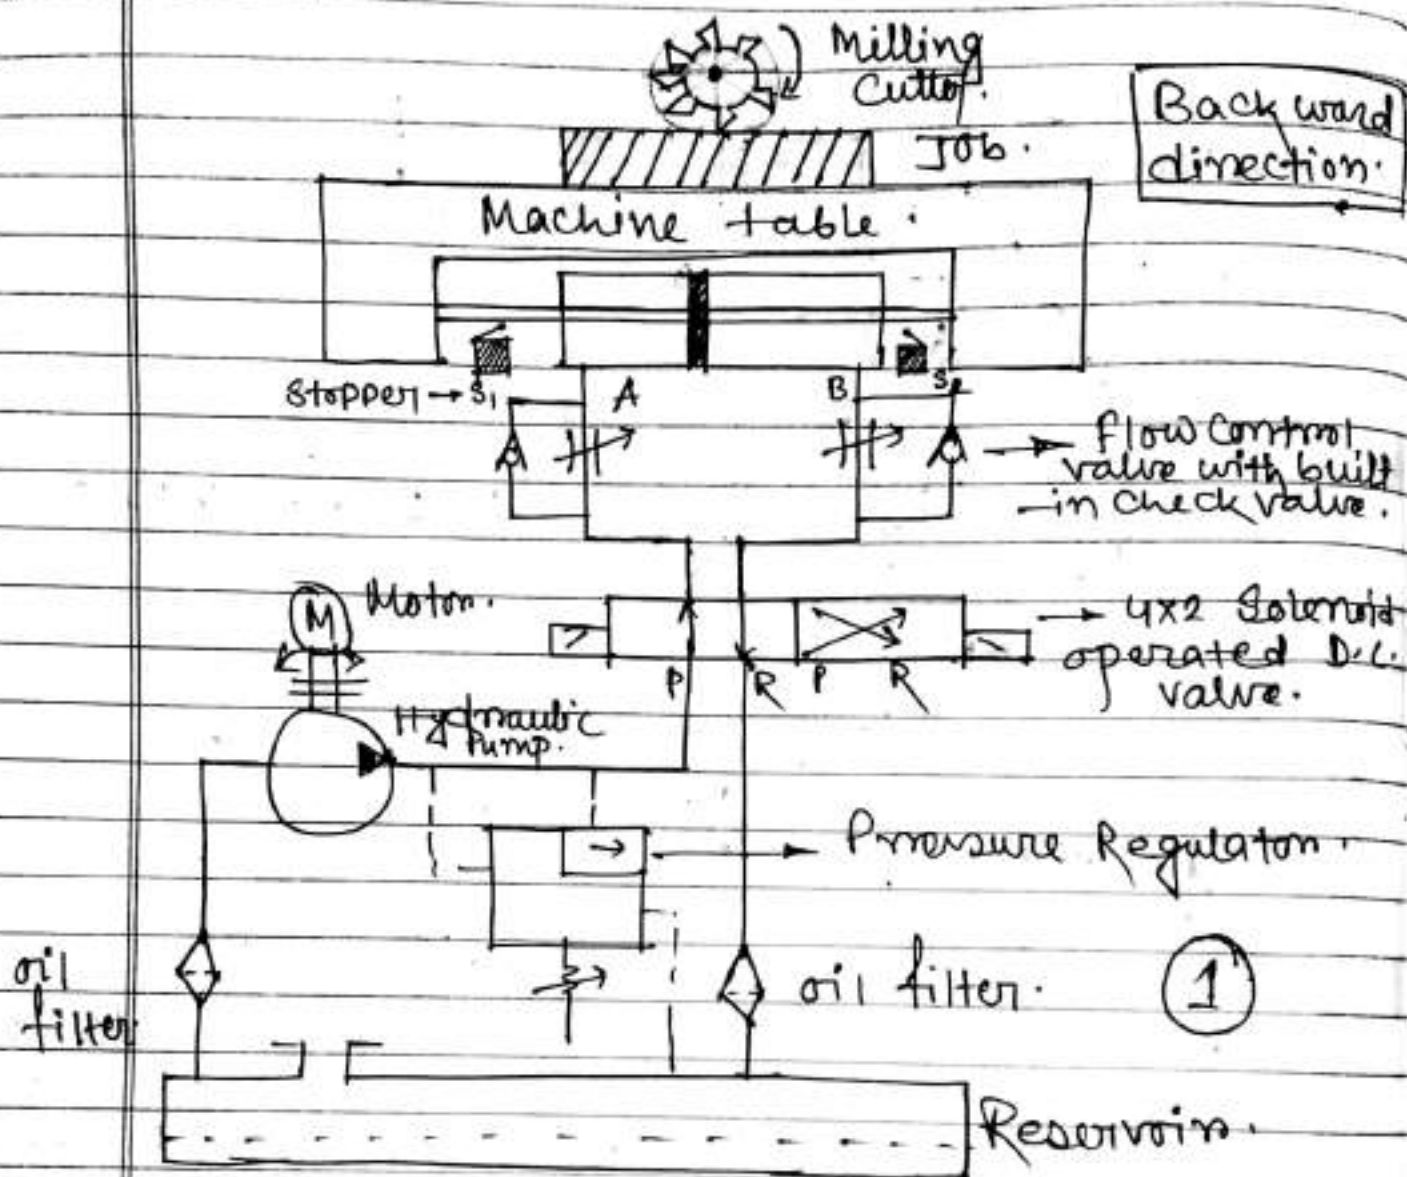 Milling
Cutter.
Job.
Back ward
direction.
Machine table.
Stopper → S1
A
B
S2
Flow Control
valve with built
-in Check valve.
M
Motor.
4x2 Solenoid
operated D.C.
valve.
P
R
P
R
Hydraulic
Pump.
Pressure Regulator.
oil
filter
oil filter.
1
Reservoir.